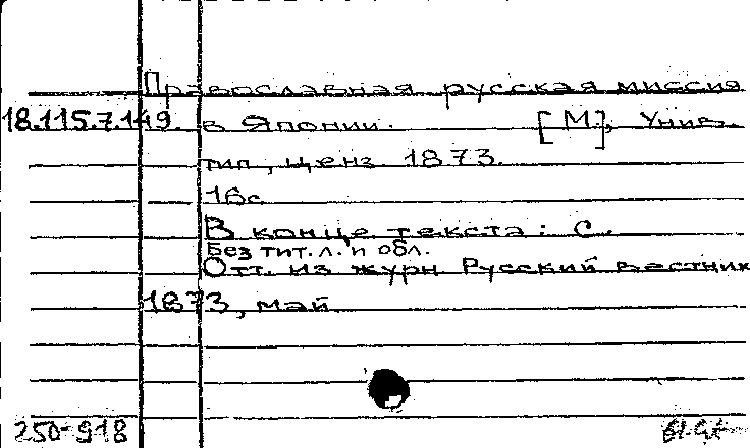 Православная русская миссия
18.115.7.149. в Японии. [М.], Унив.
тип, ценз. 1873.
16с
В конце текста: С.
Без тит. л. и обл.
Отт. из журн Русский вестник
1873, май.
250-918